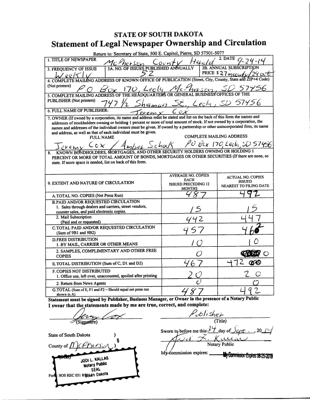 STATE OF SOUTH DAKOTA
Statement of Legal Newspaper Ownership and Circulation
Return to: Secretary of State, 500 E. Capitol, Pierre, SD 57501-5077
1. TITLE OF NEWSPAPER McPherson County Herald 2. DATE 9-24-14
3. FREQUENCY OF ISSUE Weekly 3A. NO. OF ISSUES PUBLISHED ANNUALLY 52 3B. ANNUAL SUBSCRIPTION PRICE
4. COMPLETE MAILING ADDRESS OF KNOWN OFFICE OF PUBLICATION (Street, City, County, State and ZIP+4 Code)
(Not printers) P O Box 170, Leola McPherson, SD 57456
5. COMPLETE MAILING ADDRESS OF THE HEADQUARTERS OR GENERAL BUSINESS OFFICES OF THE
PUBLISHER (Not printer) 747 1/2 Sherman St., Leola, SD 57456
6. FULL NAME OF PUBLISHER: Jeremy Cox
7. OWNER (If owned by a corporation, its name and address must be stated and also on the back of this form the names and
addresses of stockholders owning or holding 1 percent or more of total amount of stock. If not owned by a corporation, the
names and addresses of the individual owners must be given. If owned by a partnership or other unincorporated firm, its name
and address, as well as that of each individual must be given.
FULL NAME COMPLETE MAILING ADDRESS
Jeremy Cox / PO Box 170, Leola, SD 57456
8. KNOWN BONDHOLDERS, MORTGAGES, AND OTHER SECURITY HOLDERS OWNING OR HOLDING 1
PERCENT OR MORE OF TOTAL AMOUNT OF BONDS, MORTGAGES OR OTHER SECURITIES (If there are none, so
state. If more space is needed, list on back of this form.
9. EXTENT AND NATURE OF CIRCULATION
AVERAGE NO. COPIES EACH ISSUED PRECEDING 12 MONTHS
ACTUAL NO. COPIES ISSUED NEAREST TO FILING DATE
A. TOTAL NO. COPIES (Net Press Run) 487 492
B. PAID AND/OR REQUESTED CIRCULATION
1. Sales through dealers and carriers, street vendors,
counter sales, and paid electronic copies. 15 15
2. Mail Subscription
(Paid and or requested) 442 447
C. TOTAL PAID AND/OR REQUESTED CIRCULATION
(Sum of 9B1 and 9B2) 457
D. FREE DISTRIBUTION
1. BY MAIL, CARRIER OR OTHER MEANS 10 10
2. SAMPLES, COMPLIMENTARY AND OTHER FREE
COPIES 0 0
E. TOTAL DISTRIBUTION (Sum of C, D1 and D2) 467 472
F. COPIES NOT DISTRIBUTED
1. Office use, left over, unaccounted, spoiled after printing 20 20
2. Return from News Agents 0 0
G. TOTAL (Sum of E, F1 and F2 – Should equal net press run
shown in A) 487 492
Statement must be signed by Publisher, Business Manager, or Owner in the presence of a Notary Public
I swear that the statements made by me are true, correct, and complete:
Publisher
(Signature) (Title)
State of South Dakota )
Sworn to before me this 24 day of Sept., 2014
County of McPherson )
Notary Public
JODI L. KALLAS
Notary Public
SEAL
South Dakota
My commission expires: